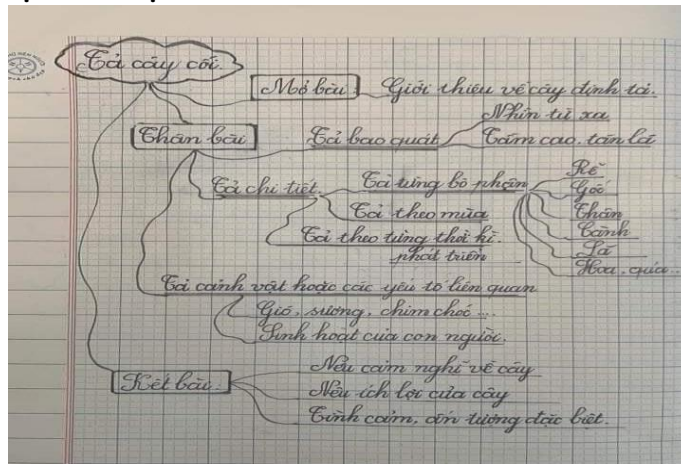 Tả cây cối.
Mở bài: Giới thiệu về cây định tả.
Thân bài Tả bao quát Nhìn từ xa
Tầm cao, tán lá
Tả chi tiết. Tả từng bộ phận Rễ
Gốc
Thân
Cành
Lá
Hoa, quả...
Tả theo mùa
Tả theo từng thời kì
phát triển
Tả cảnh vật hoặc các yếu tố liên quan
Gió, sương, chim chóc ...
Sinh hoạt của con người.
Kết bài: Nêu cảm nghĩ về cây
Nêu ích lợi của cây
Tình cảm, ấn tượng đặc biệt.